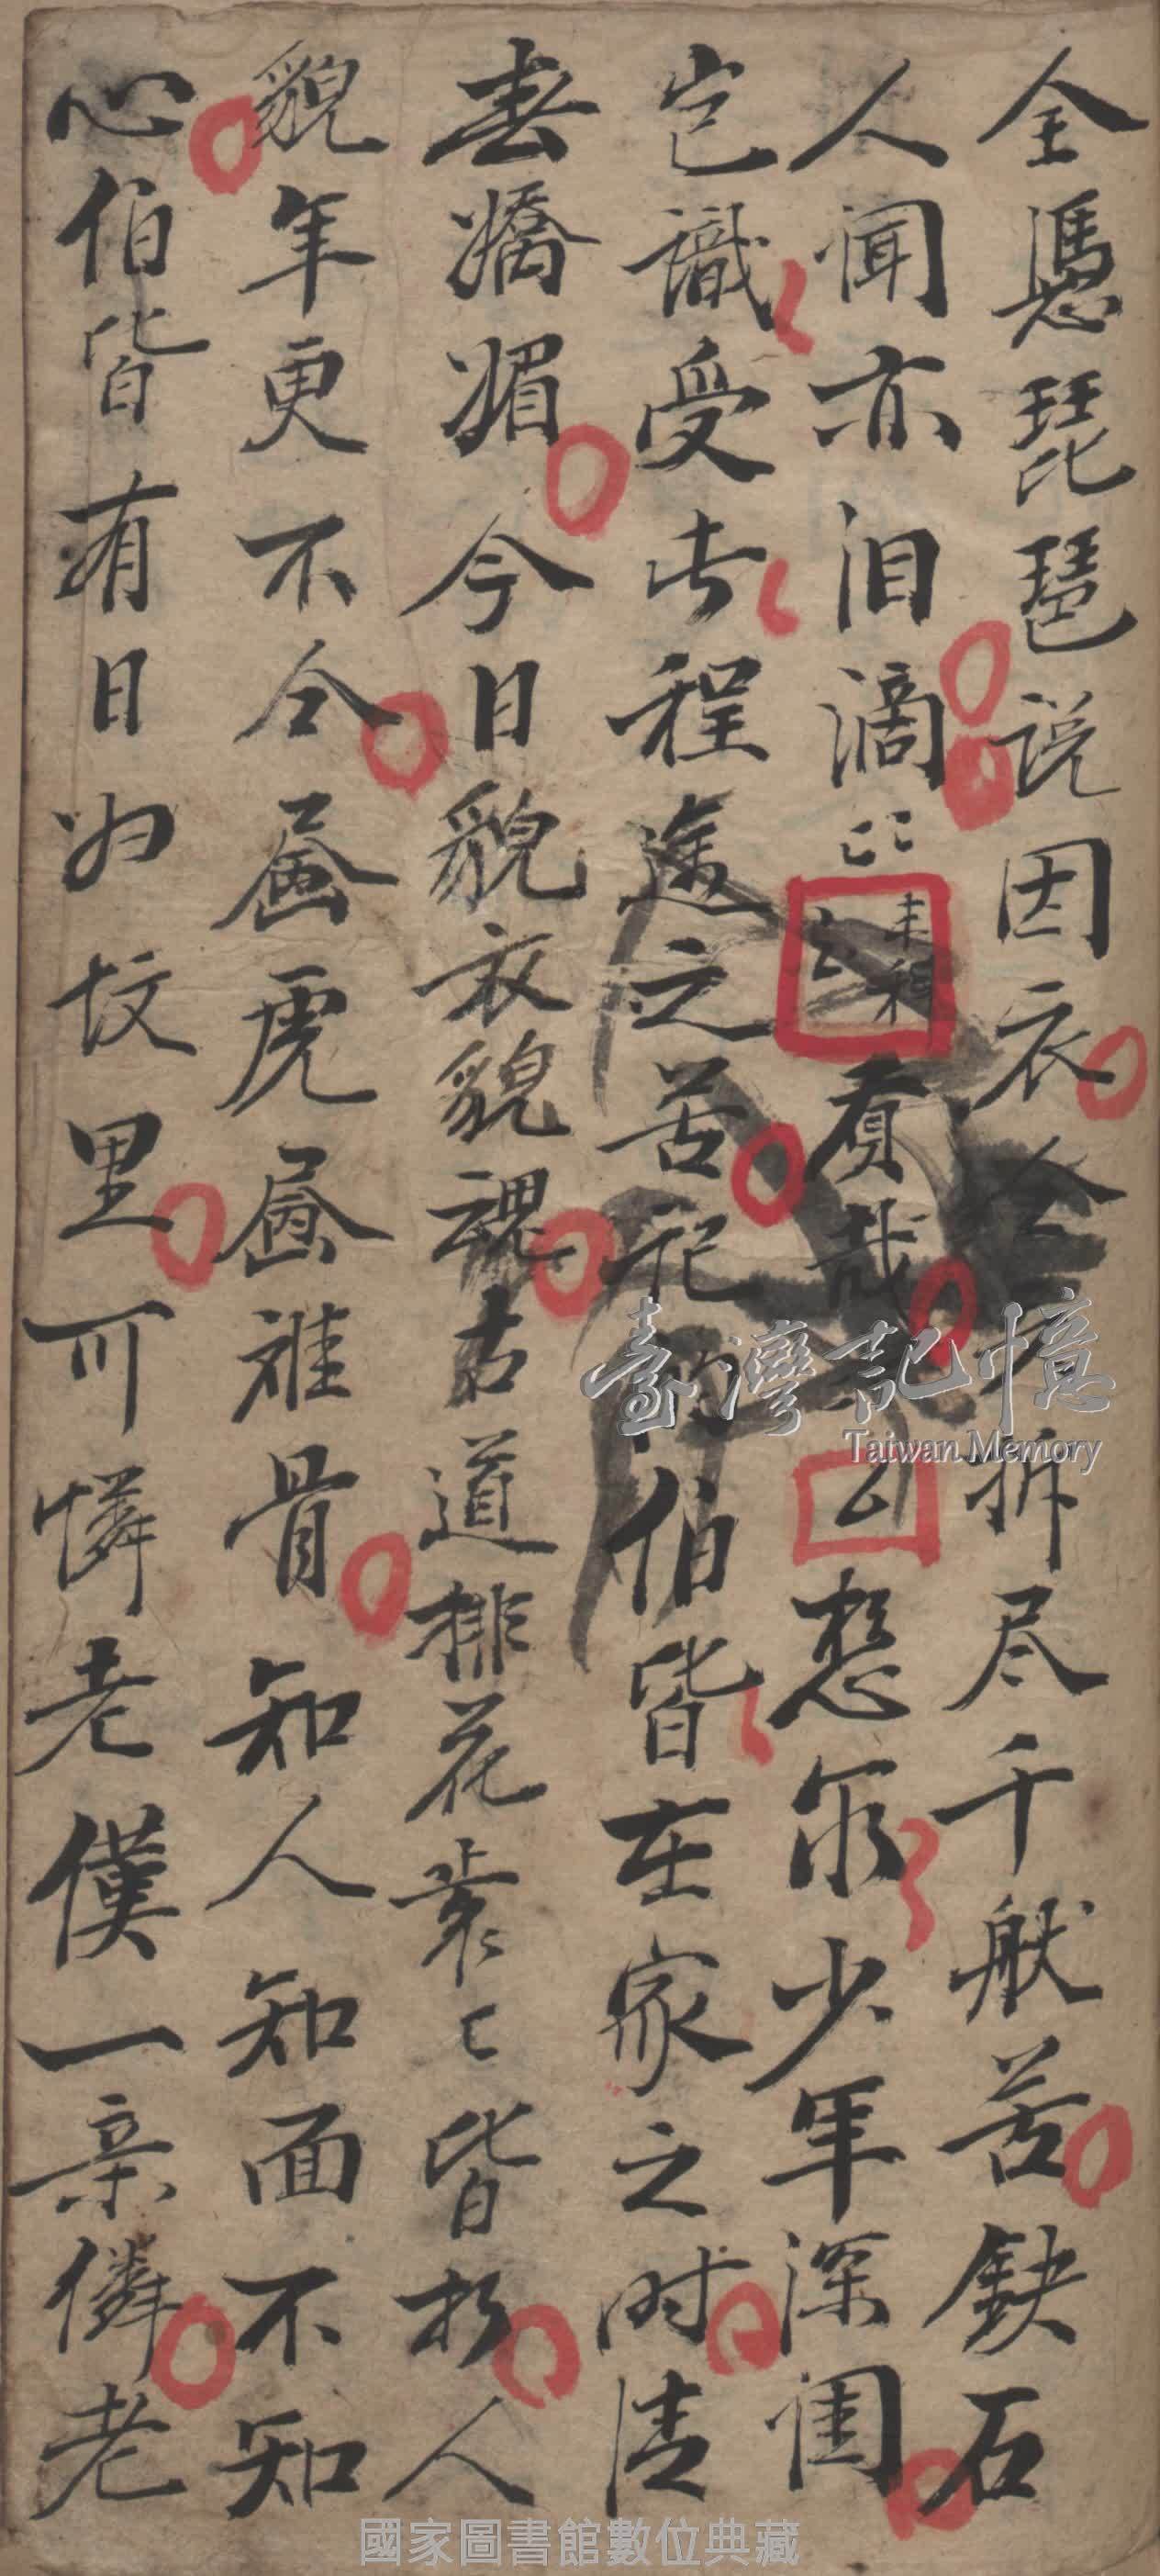 全憑琵琶說因衣人拆尽千般苦鉄石
人闻亦泪滴匕看哉厶愁尔少年深闺
它識受古程途之苦記伯皆在家之时清
春嬌媚今日貌衣貌魂古道排花裳匕皆於人
貌年更不仝畫虎畫难骨知人知面不知
心伯皆有日如坟里可憐老僕一亲憐老
臺灣記憶
Taiwan Memory
國家圖書館數位典藏